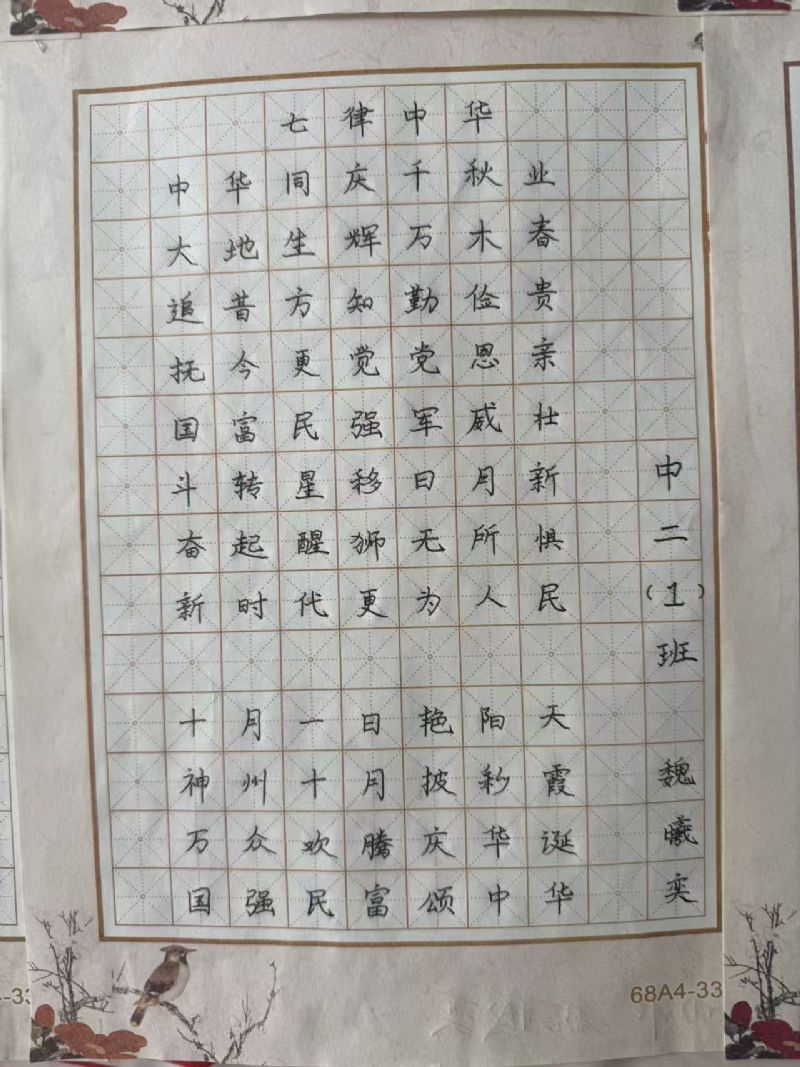 七律中华
中华同庆千秋业
大地生辉万木春
追昔方知勤俭贵
抚今更觉党恩亲
国富民强军威壮
斗转星移日月新
奋起醒狮无所惧
新时代更为人民
十月一日艳阳天
神州十月披彩霞
万众欢腾庆华诞
国强民富颂中华
中二(1)班 魏曦奕
68A4-33
-33